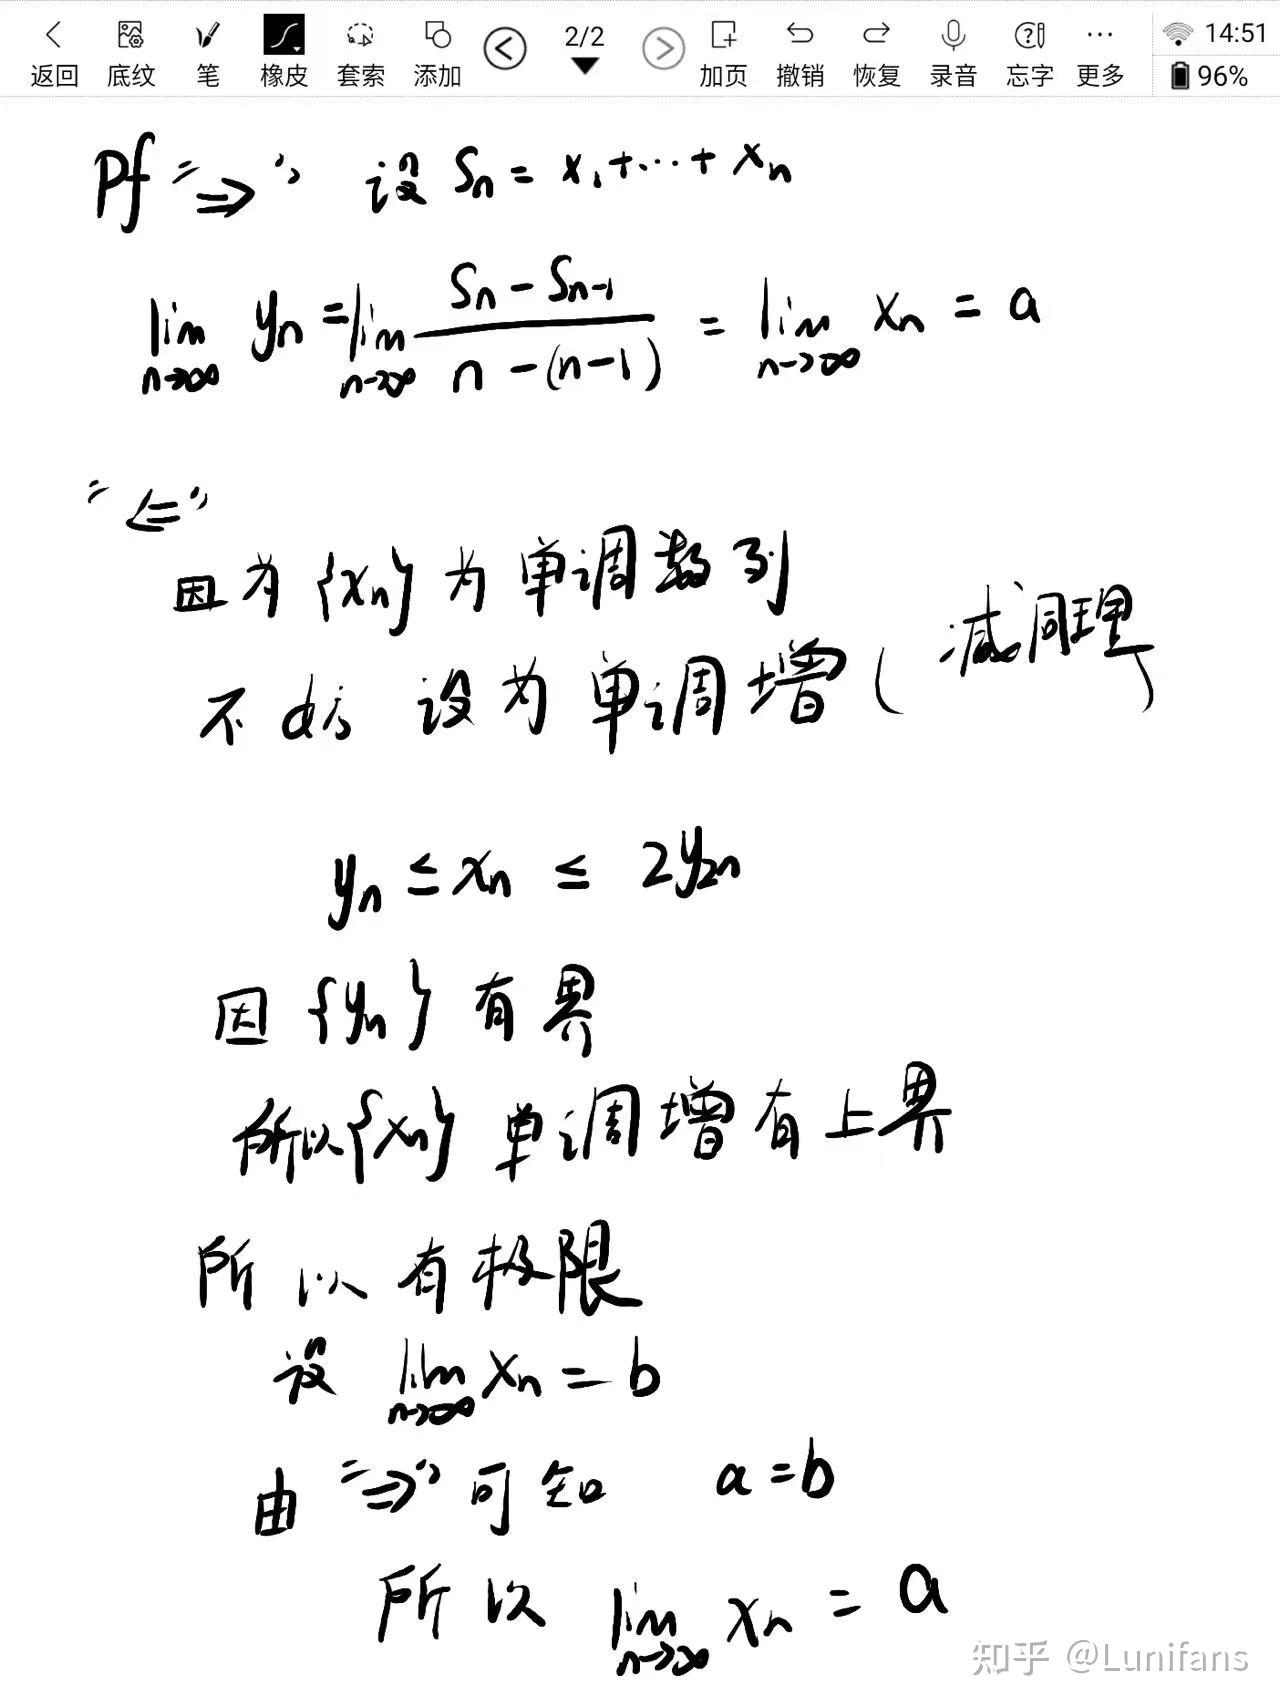 返回 底纹 笔 橡皮 套索 添加 2/2 加页 撤销 恢复 录音 忘字 更多 14:51 96%
Pf "⇒" 设 Sn = x1+…+xn
lim n→∞ yn = lim n→∞ (Sn − Sn-1)/(n − (n−1)) = lim n→∞ xn = a
"⇐"
因为{xn}为单调数列
不 设为单调增(减同理)
yn ≤ xn ≤ 2y2n
因{yn}有界
所以{xn}单调增有上界
所以有极限
设 lim n→∞ xn = b
由"⇒"可知 a=b
所以 lim n→∞ xn = a
知乎 @Lunifans